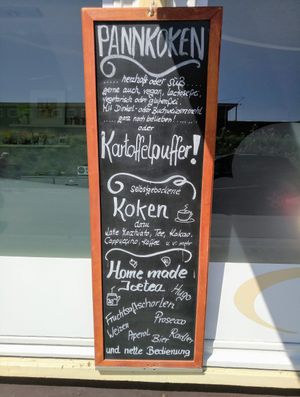 PANNKOKEN
..... herzhaft oder süß
gerne auch, vegan, lactosefrei,
vegetarisch oder glutenfrei.
Mit Dinkel- oder Buchweizenmehl
..... ganz nach belieben! .....
oder
Kartoffelpuffer!
selbstgebackene
Koken
dazu
Late Macchiato, Tee, Kakao,
Cappuccino, Kaffee u. v. mehr
Home made
Icetea
Hugo
Fruchtsaftschorlen
Prosecco
Weizen
Aperol Bier Radler
und nette Bedienung